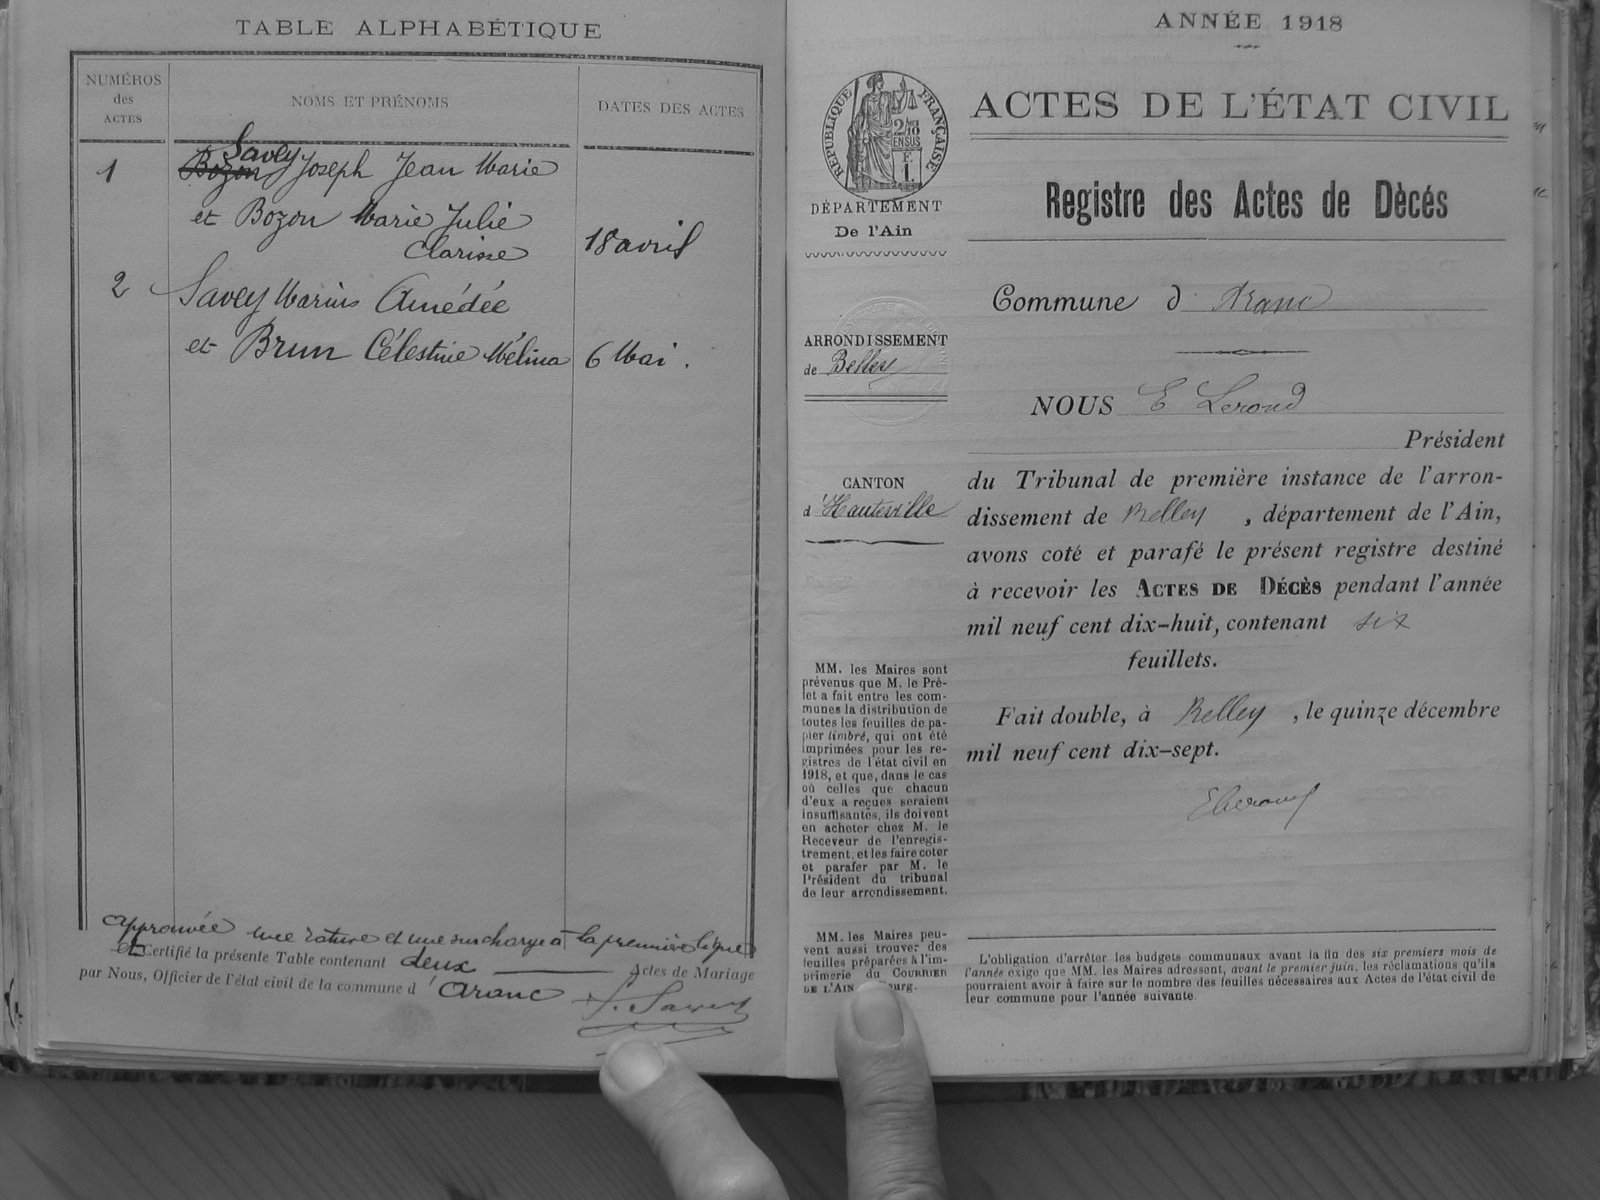 TABLE ALPHABÉTIQUE
NUMÉROS
des
ACTES
NOMS ET PRÉNOMS
DATES DES ACTES
Savey
1 Bozon Joseph Jean Marie
et Bozon Marie Julie
Clarisse 18 avril
2 Savey Marius Amédée
et Brun Célestine Mélina 6 Mai.
Approuvée une rature et une surcharge à la première ligne
Certifié la présente Table contenant deux Actes de Mariage
par Nous, Officier de l'état civil de la commune d'Aranc
J. Savey
ANNÉE 1918
RÉPUBLIQUE FRANÇAISE
2/10
EN SUS
F.
1.
DÉPARTEMENT
De l'Ain
ARRONDISSEMENT
de Belley
CANTON
d'Hauteville
MM. les Maires sont
prévenus que M. le Pré-
fet a fait entre les com-
munes la distribution de
toutes les feuilles de pa-
pier timbré, qui ont été
imprimées pour les re-
gistres de l'état civil en
1918, et que, dans le cas
où celles que chacun
d'eux a reçues seraient
insuffisantes, ils doivent
en acheter chez M. le
Receveur de l'enregis-
trement, et les faire coter
et parafer par M. le
Président du tribunal
de leur arrondissement.
MM. les Maires peu-
vent aussi trouver des
feuilles préparées à l'im-
primerie du COURRIER
DE L'AIN ourg.
ACTES DE L'ÉTAT CIVIL
Registre des Actes de Dècés
Commune d'Aranc
NOUS E Lerond
Président
du Tribunal de première instance de l'arron-
dissement de Belley, département de l'Ain,
avons coté et parafé le présent registre destiné
à recevoir les ACTES DE DÉCÈS pendant l'année
mil neuf cent dix-huit, contenant six
feuillets.
Fait double, à Belley, le quinze décembre
mil neuf cent dix-sept.
ELerond
L'obligation d'arrêter les budgets communaux avant la fin des six premiers mois de
l'année exige que MM. les Maires adressent, avant le premier juin, les réclamations qu'ils
pourraient avoir à faire sur le nombre des feuilles nécessaires aux Actes de l'état civil de
leur commune pour l'année suivante.